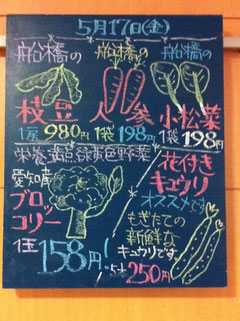 5月17日(金)
船橋の
枝豆
1房 980円
船橋の
人参
1袋 198円
船橋の
小松菜
1袋 198円
栄養満点緑黄色野菜
愛知産
ブロッコリー
1玉 158円!
花付き
キュウリ
オススメです
もぎたての
新鮮な
キュウリです。
250円